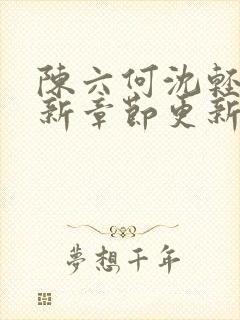 陳六何沈輕
新章節更新
夢想千年